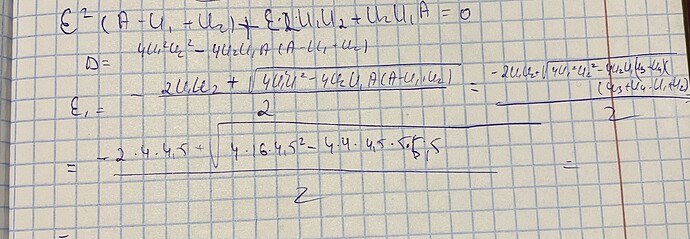 ε² (A - U₁ + U₂) + ε·2U₁U₂ + U₂U₁A = 0
D = 4U₁²U₂² - 4U₂U₁A (A - U₁ + U₂)
ε₁ = - 2U₁U₂ + √4U₁²U₂² - 4U₂U₁A(A-U₁+U₂) / 2 = -2U₁U₂ + √4U₁²U₂² - 4U₂U₁(U₃+U₄)(U₃+U₄-U₁+U₂) / 2
= -2·4·4,5 + √4·16·4,5² - 4·4·4,5·5·5,5 / 2 =
=